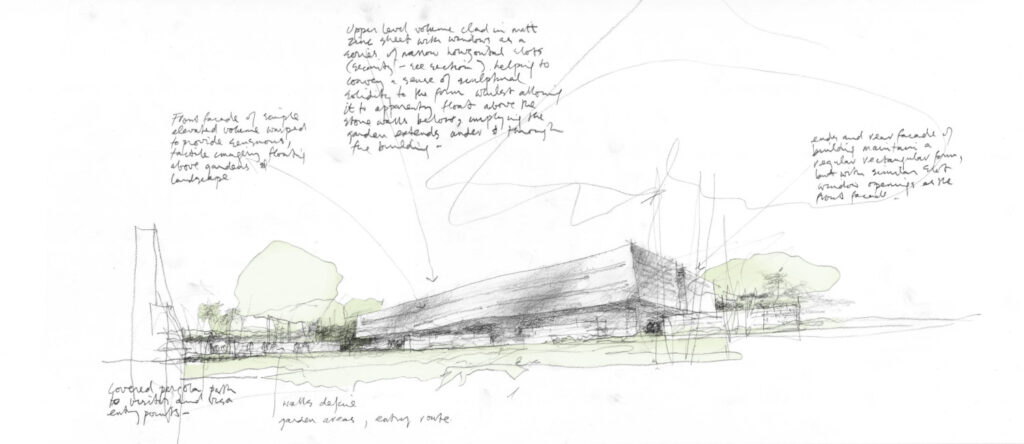 Upper level volume clad in matt
zinc sheet with windows as a
series of narrow horizontal slots
(security - see section), helping to
convey a sense of sculptural
solidity to the form whilst allowing
it to apparently float above the
stone walls below, implying the
garden extends under & through
the building -
Front facade of simple
elevated volume warped
to provide sensuous,
tactile imagery floating
above gardens &
landscape
ends and rear facade of
building maintain a
regular rectangular form,
but with similar slot
window openings as the
front facade -
Covered pergola path
to visitor and visa
entry points -
walls define
garden areas, entry route